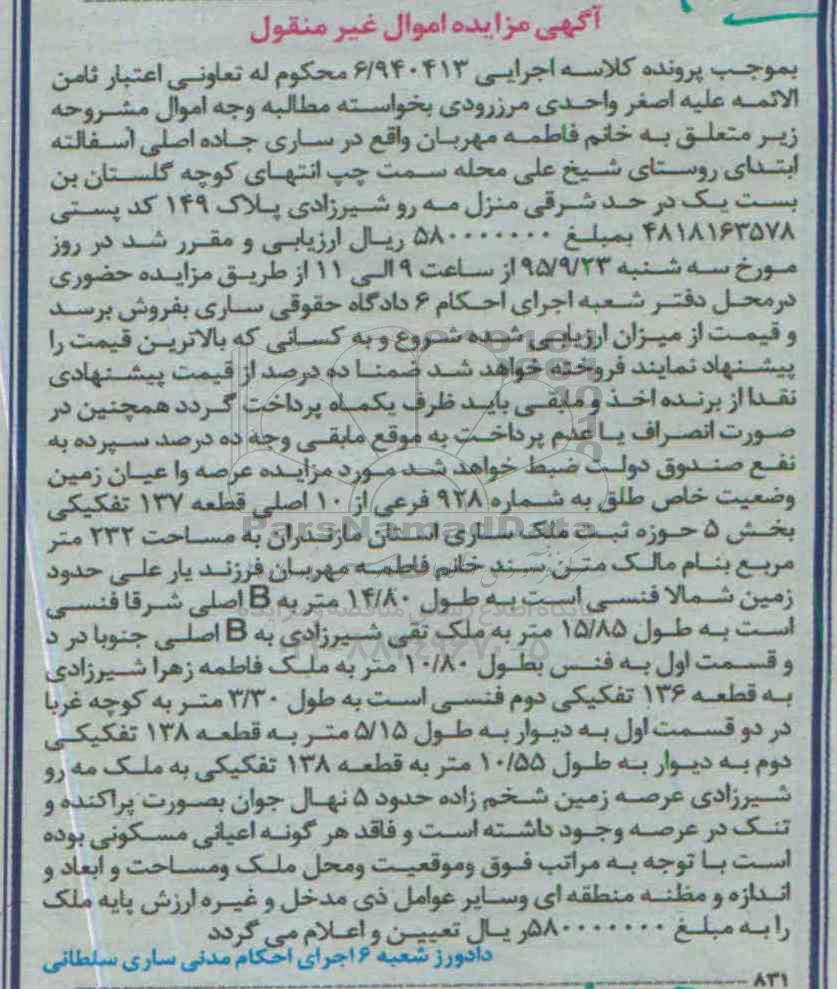 آگهی مزایده اموال غیر منقول
بموجب پرونده کلاسه اجرایی ۶/۹۴۰۴۱۳ محکوم له تعاونی اعتبار ثامن
الائمه علیه اصغر واحدی مرزرودی بخواسته مطالبه وجه اموال مشروحه
زیر متعلق به خانم فاطمه مهربان واقع در ساری جاده اصلی آسفالته
ابتدای روستای شیخ علی محله سمت چپ انتهای کوچه گلستان بن
بست یک در حد شرقی منزل مه رو شیرزادی پلاک ۱۴۹ کد پستی
۴۸۱۸۱۶۳۵۷۸ بمبلغ ۵۸۰۰۰۰۰۰۰ ریال ارزیابی و مقرر شد در روز
مورخ سه شنبه ۹۵/۹/۲۳ از ساعت ۹ الی ۱۱ از طریق مزایده حضوری
درمحل دفتر شعبه اجرای احکام ۶ دادگاه حقوقی ساری بفروش برسد
و قیمت از میزان ارزیابی شده شروع و به کسانی که بالاترین قیمت را
پیشنهاد نمایند فروخته خواهد شد ضمنا ده درصد از قیمت پیشنهادی
نقدا از برنده اخذ و مابقی باید ظرف یکماه پرداخت گردد همچنین در
صورت انصراف یا عدم پرداخت به موقع مابقی وجه ده درصد سپرده به
نفع صندوق دولت ضبط خواهد شد مورد مزایده عرصه وا عیان زمین
وضعیت خاص طلق به شماره ۹۲۸ فرعی از ۱۰ اصلی قطعه ۱۳۷ تفکیکی
بخش ۵ حوزه ثبت ملک ساری استان مازندران به مساحت ۲۳۲ متر
مربع بنام مالک متن سند خانم فاطمه مهربان فرزند یار علی حدود
زمین شمالا فنسی است به طول ۱۴/۸۰ متر به B اصلی شرقا فنسی
است به طول ۱۵/۸۵ متر به ملک تقی شیرزادی به B اصلی جنوبا در د
و قسمت اول به فنس بطول ۱۰/۸۰ متر به ملک فاطمه زهرا شیرزادی
به قطعه ۱۳۶ تفکیکی دوم فنسی است به طول ۳/۳۰ متر به کوچه غربا
در دو قسمت اول به دیوار به طول ۵/۱۵ متر به قطعه ۱۳۸ تفکیکی
دوم به دیوار به طول ۱۰/۵۵ متر به قطعه ۱۳۸ تفکیکی به ملک مه رو
شیرزادی عرصه زمین شخم زاده حدود ۵ نهال جوان بصورت پراکنده و
تنک در عرصه وجود داشته است و فاقد هر گونه اعیانی مسکونی بوده
است با توجه به مراتب فوق وموقعیت ومحل ملک ومساحت و ابعاد و
اندازه و مظنه منطقه ای وسایر عوامل ذی مدخل و غیره ارزش پایه ملک
را به مبلغ ۵۸۰۰۰۰۰۰۰ ریال تعیین و اعلام می گردد
دادورز شعبه ۶ اجرای احکام مدنی ساری سلطانی
۸۳۱
ParsNamadData